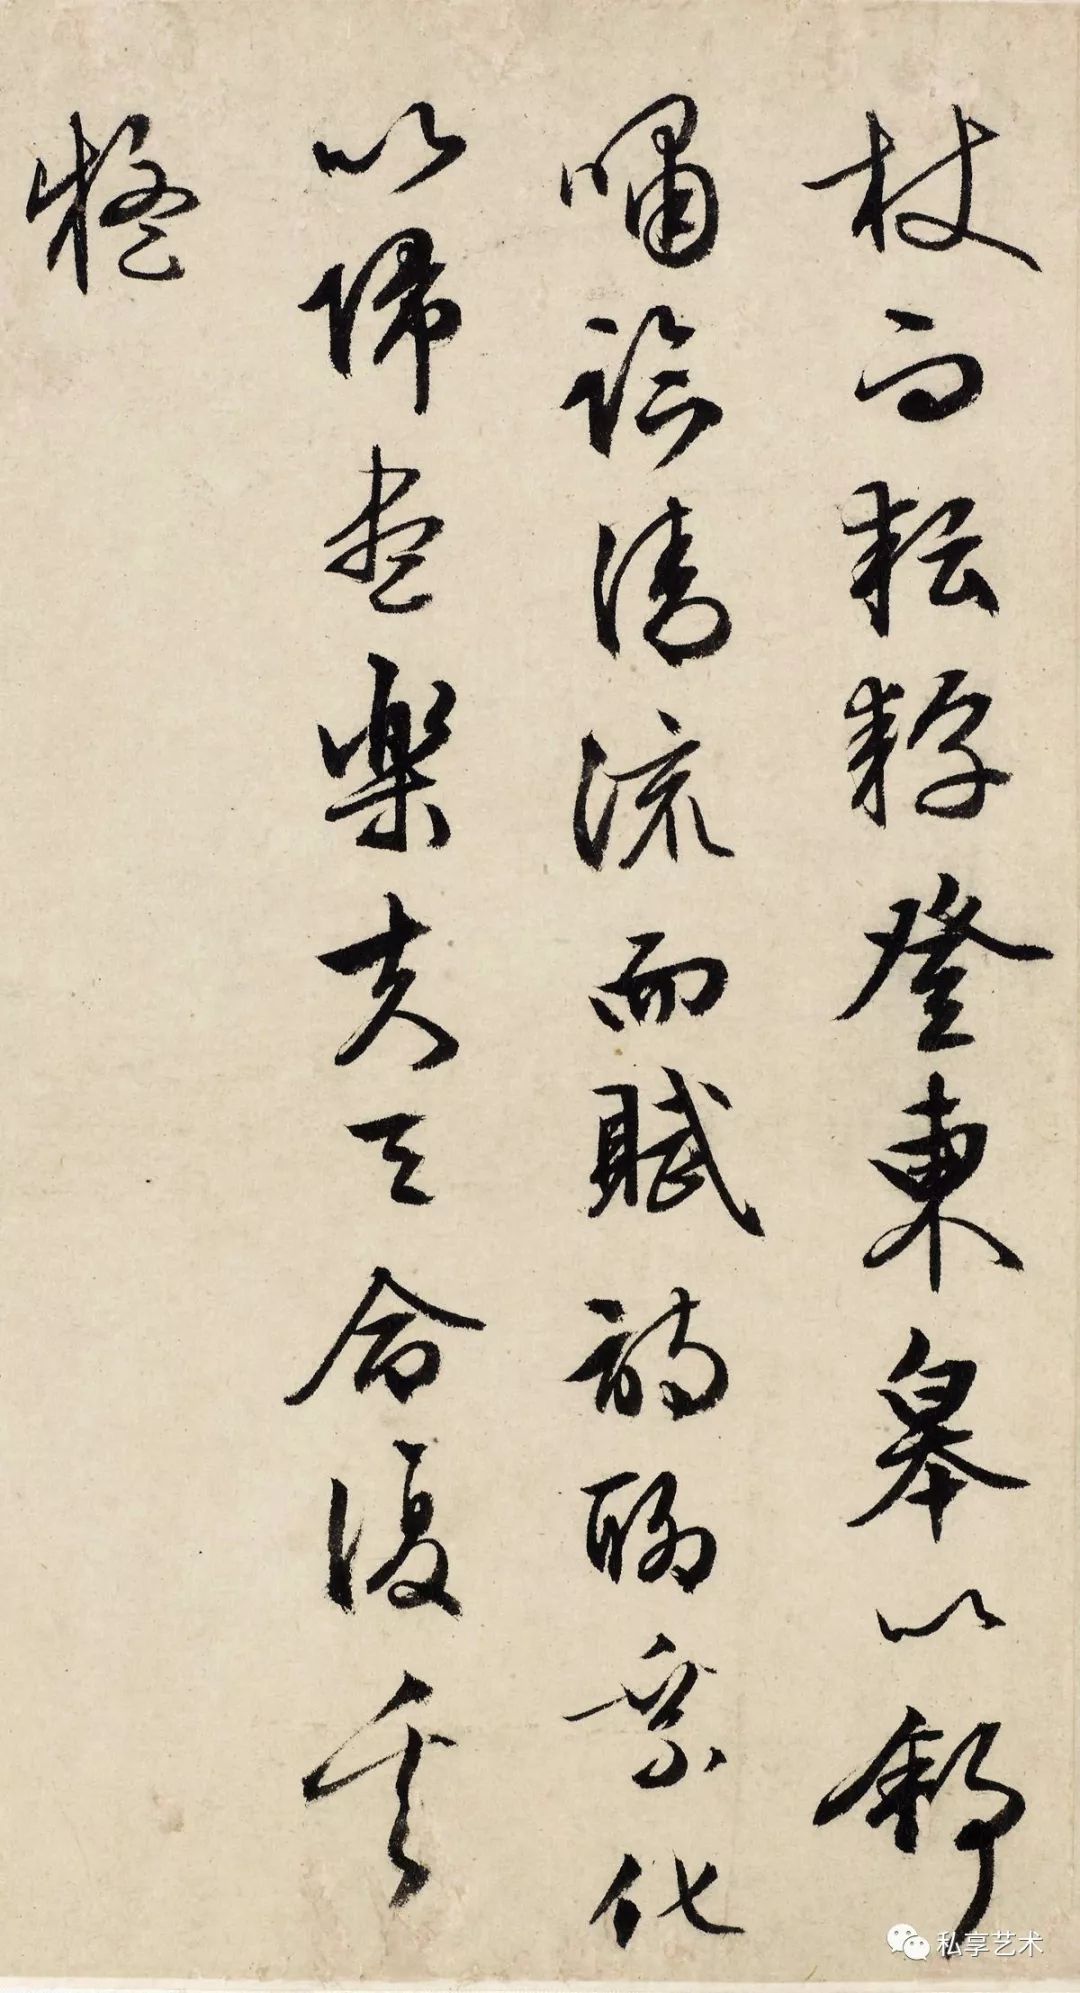 杖而耘耔登東皋以舒
嘯臨清流而賦詩聊乘化
以歸盡樂夫天命復奚
疑
私享艺术